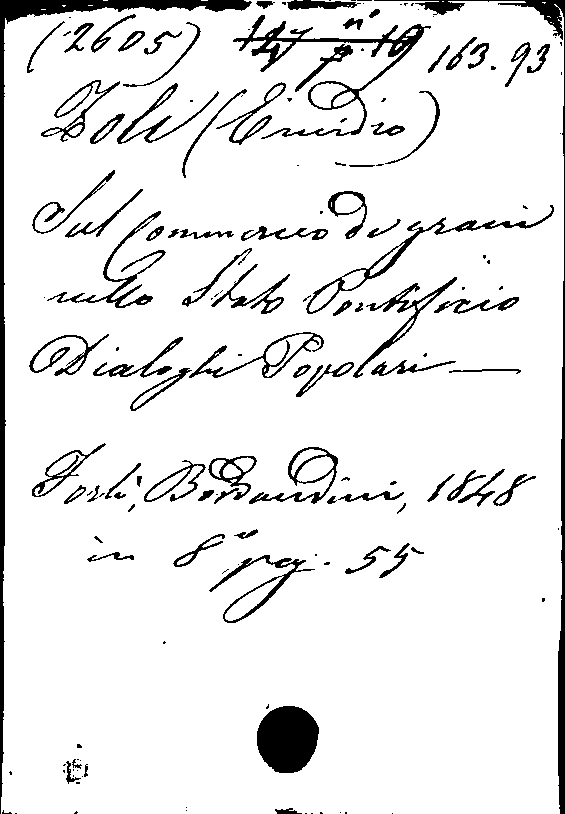 (2605) 147 n° p. 19 163.93
Zoli (Emidio)
Sul Commercio de grani
nello Stato Pontificio
Dialoghi Popolari —
Forlì, Bordandini, 1848
in 8° pag. 55